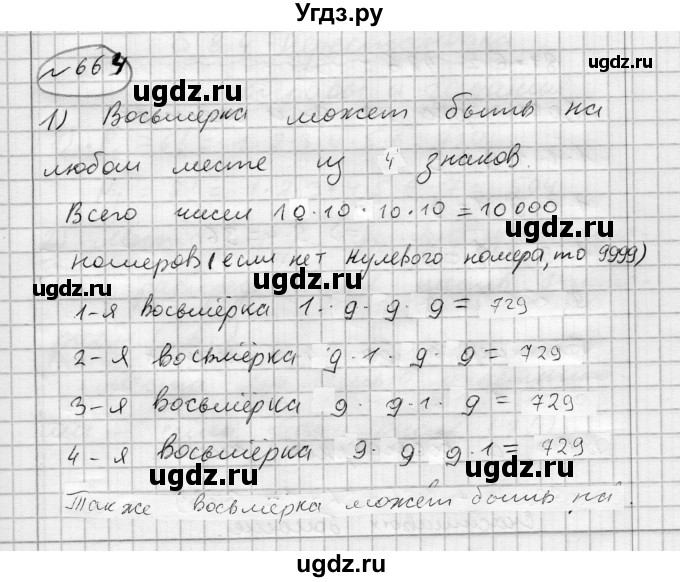 Угдз.ру
№ 664
ugdz.ru
ugdz.ru
1) Восьмёрка может быть на
ugdz.ru
любом месте из 4 знаков.
Всего чисел 10·10·10·10=10000
ugdz.ru
номеров (если нет нулевого номера, то 9999)
ugdz.ru
ugdz.ru
1-я восьмёрка 1·9·9·9=729
2-я восьмёрка 9·1·9·9=729
ugdz.ru
ugdz.ru
3-я восьмёрка 9·9·1·9=729
4-я восьмёрка 9·9·9·1=729
ugdz.ru
ugdz.ru
Также восьмёрка может быть на
ugdz.ru
ugdz.ru